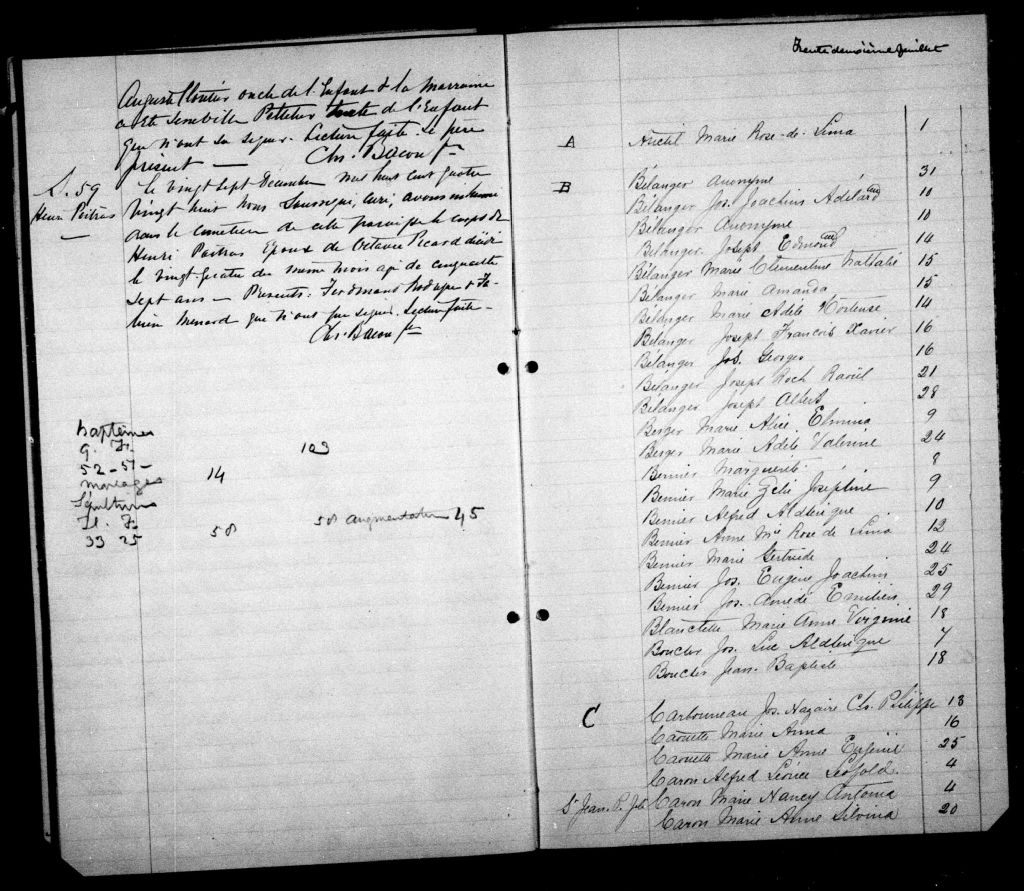 Auguste Cloutier oncle de l'Enfant & la Marraine
a été Senville Pelletier tante de l'Enfant
qui n'ont su signer. Lecture faite. Le père
présent —
Chs. Bacon ptr
S. 59
Henri Poitras
—
Le vingt sept Decembre mil huit cent quatre
vingt huit nous soussigné, curé, avons inhumé
dans le cimetière de cette paroisse le corps de
Henri Poitras Epoux de Octavie Picard décédé
le vingt quatre du même mois agé de cinquante
sept ans — Presents: Ferdinand Rodrigue &
Menard qui n'ont pu signer. Lecture faite —
Chs. Bacon ptr
Baptêmes
G. F.
52 - 51 -
103
mariages
14
Sépultures
H. F.
33 25
58
58 augmentation 45
Trente deuxième feuillet
A
Anctil Marie Rose-de-Lima 1
B
Bélanger Anonyme 31
Bélanger Jos. Joachim Adélard 10
Bélanger Anonyme 10
Bélanger Joseph Edmond 14
Bélanger Marie Clementine Nathalie 15
Bélanger Marie Amanda 15
Bélanger Marie Adèle Hortense 14
Bélanger Joseph François Xavier 16
Bélanger Jos. Georges 16
Bélanger Joseph Roch Raoül 21
Bélanger Joseph Albert 28
Berger Marie Alice Elmina 9
Berger Marie Adèle Valerine 24
Bernier Marguerite 8
Bernier Marie Zélie Joséphine 9
Bernier Alfred Aldérique 10
Bernier Anne Mie Rose de Lima 12
Bernier Marie Gertrude 24
Bernier Jos. Eugène Joachim 25
Bernier Jos. Amédé Emilien 29
Blanchette Marie Anne Virginie 18
Boucher Jos. Luc Aldérique 7
Boucher Jean-Baptiste 18
C
Carbonneau Jos. Nazaire Chs. Philippe 13
Caouette Marie Anna 16
Caouette Marie Anne Eugénie 25
Caron Alfred Léonce Léopold 4
St Jean P. Joli Caron Marie Nancy Antonia 4
Caron Marie Anne Silvina 20